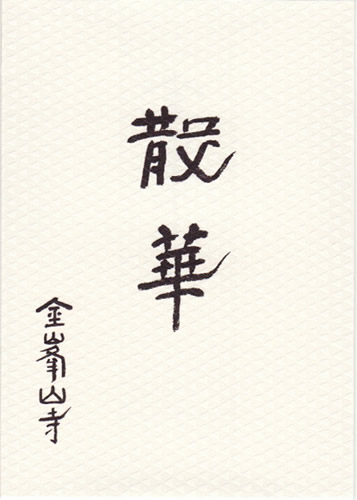 散華
金峯山寺